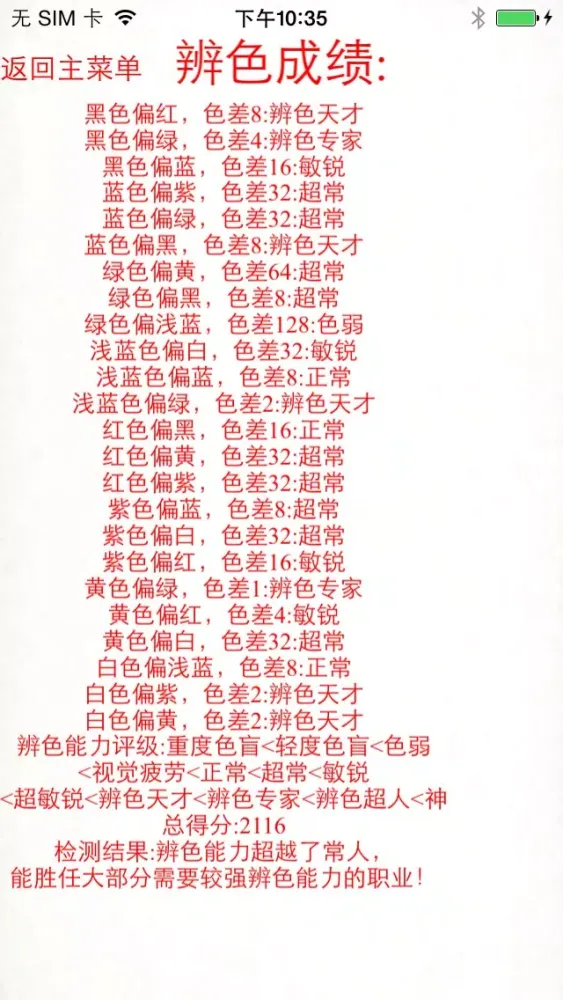 无 SIM 卡 下午10:35
返回主菜单 辨色成绩:
黑色偏红，色差8:辨色天才
黑色偏绿，色差4:辨色专家
黑色偏蓝，色差16:敏锐
蓝色偏紫，色差32:超常
蓝色偏绿，色差32:超常
蓝色偏黑，色差8:辨色天才
绿色偏黄，色差64:超常
绿色偏黑，色差8:超常
绿色偏浅蓝，色差128:色弱
浅蓝色偏白，色差32:敏锐
浅蓝色偏蓝，色差8:正常
浅蓝色偏绿，色差2:辨色天才
红色偏黑，色差16:正常
红色偏黄，色差32:超常
红色偏紫，色差32:超常
紫色偏蓝，色差8:超常
紫色偏白，色差32:超常
紫色偏红，色差16:敏锐
黄色偏绿，色差1:辨色专家
黄色偏红，色差4:敏锐
黄色偏白，色差32:超常
白色偏浅蓝，色差8:正常
白色偏紫，色差2:辨色天才
白色偏黄，色差2:辨色天才
辨色能力评级:重度色盲<轻度色盲<色弱
<视觉疲劳<正常<超常<敏锐
<超敏锐<辨色天才<辨色专家<辨色超人<神
总得分:2116
检测结果:辨色能力超越了常人，
能胜任大部分需要较强辨色能力的职业！